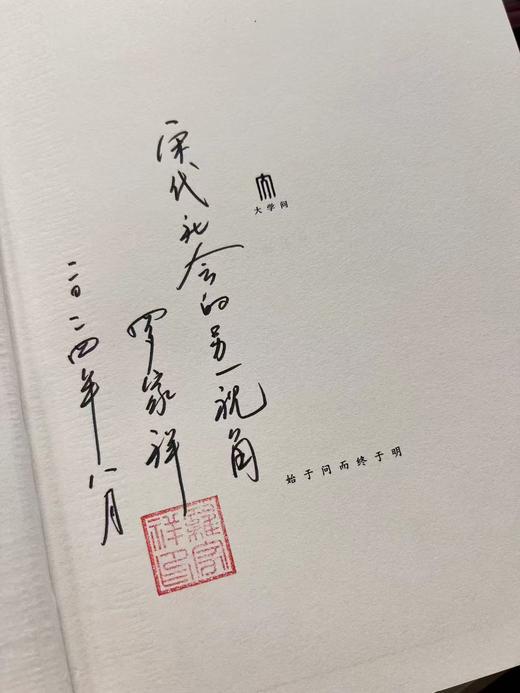 宋代社会的另一视角
罗家祥
二〇二四年八月
羅家祥印
大学问
始于问而终于明